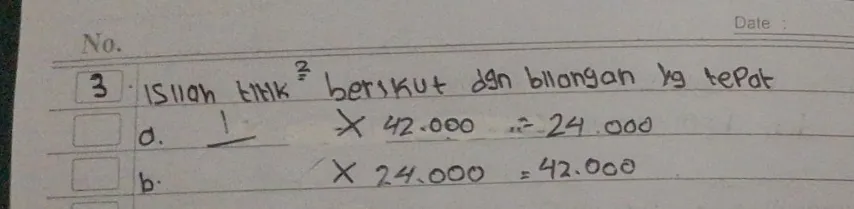 Date :
No.
3. Isilah titik² berikut dgn bilangan yg tepat
a. 1 × 42.000 = 24.000
b. × 24.000 = 42.000